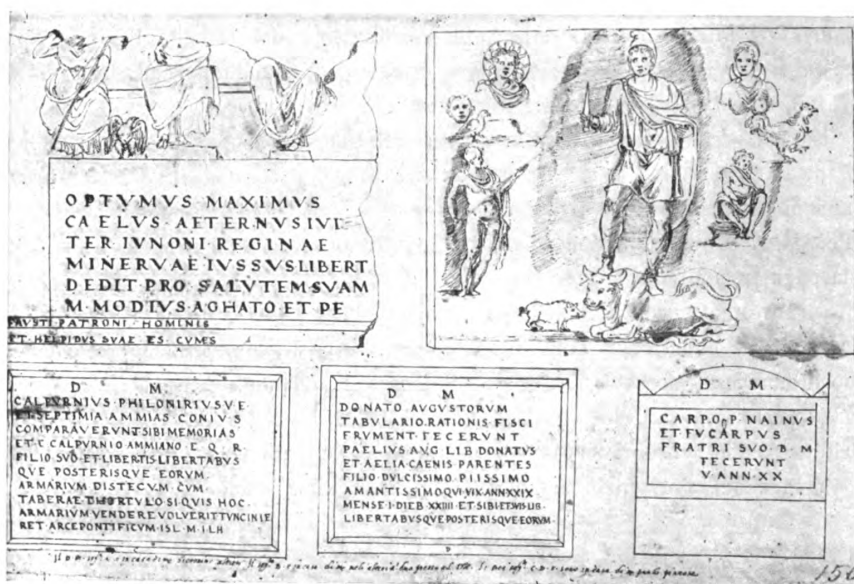 OPTVMVS MAXIMVS
CAELVS·AETERNVS IVI
TER IVNONI·REGINAE
MINERVAE IVSSVS LIBERT
DEDIT·PRO SALVTEM·SVAM
M·MODIVS·AGHATO ET PE
FAVSTI PATRONI HOMINIS
ET HELPIDVS SVAE ES CVNES
D M
CALPVRNIVS PHILONIRIVS VE
ET SEPTIMIA AMMIAS CONIVS
COMPARAVERVNT SIBI MEMORIAS
ET·C CALPVRNIO AMMIANO E Q R
FILIO SVO·ET LIBERTIS LIBERTABVS
QVE POSTERISQVE EORVM
ARMARIVM DISTECVM CVM
TABERAE SI QVIS HOC
ARMARIVM VENDERE VOLVERIT
RET ARCE PONTIFICVM
D M
DONATO AVGVSTORVM
TABVLARIO·RATIONIS FISCI
FRVMENT·FECERVNT
PAELIVS AVG LIB DONATVS
ET AELIA CAENIS PARENTES
FILIO DVLCISSIMO PIISSIMO
AMANTISSIMO QVI VIX ANN XXIX
MENSE I·DIEB XXIIII·ET SIBI ET SVIS LIB
LIBERTABVSQVE POSTERISQVE EORVM
D M
CARPO NAINVS
ET FVCARPVS
FRATRI SVO B M
FECERVNT
V ANN·XX